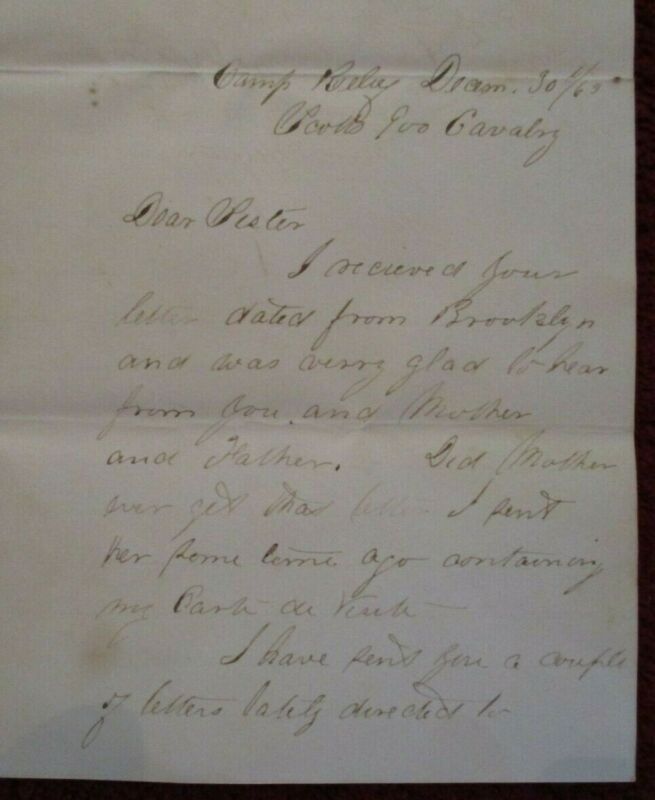 Camp Relief Decem. 30th/63
Scotts 900 Cavalry
Dear Sister
I recieved your
letter dated from Brooklyn
and was verry glad to hear
from you and Mother
and Father. Did Mother
ever get that letter I sent
her some time ago containing
my Carte de Visite
I have sent you a couple
of letters lately directed to